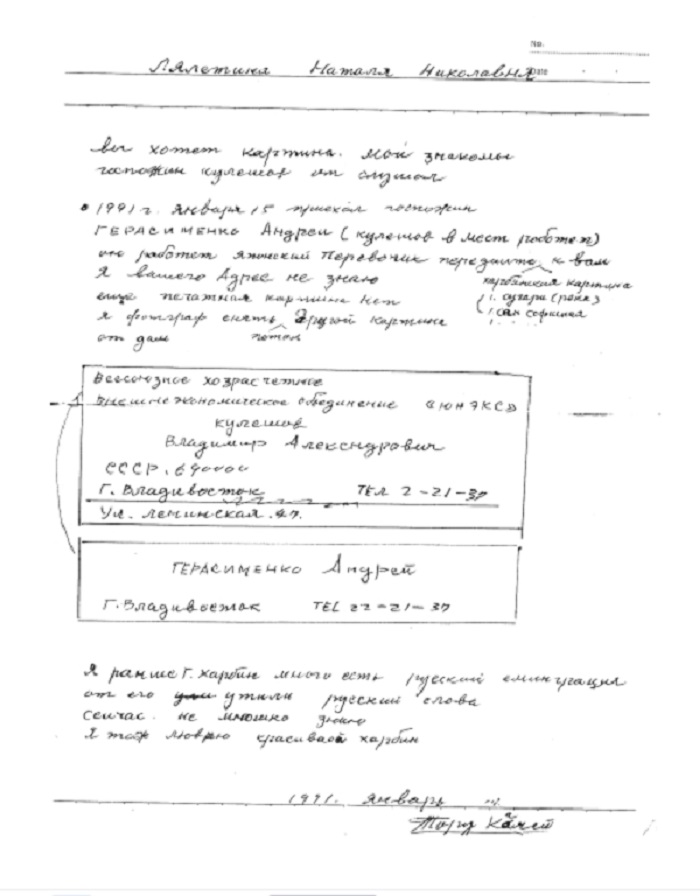 No.
Лялетина Наталя Николавня
Date
вы хотет картина. мой знакомы
госпожин кулешов
1991 г. Января 15 приехал госпожин
ГЕРАСИМЕНКО Андрей (кулешов в мест работет)
он работет японский Переводчик передайте к вам
Я вашего Адрес не знаю
харбинския картина
еще печатная картина нет
1. сунгари (река)
я фотограф снять другой картине
1 сан софиская
от дам
потом
Всесоюзное хозрасчетное
Внешнеэкономическое объединение «ЮНЭКС»
кулешов
Владимир Александрович
СССР. 690000
Г. Владивосток ТЕЛ 2-21-37
Ул. Ленинская 47.
ГЕРАСИМЕНКО Андрей
Г. Владивосток TEL 22-21-37
Я раньше Г. харбин много есть русский емиграция
от его учили русский слова
сейчас. не мношко знаю
Я тож люблю красивая харбин
1991. январь